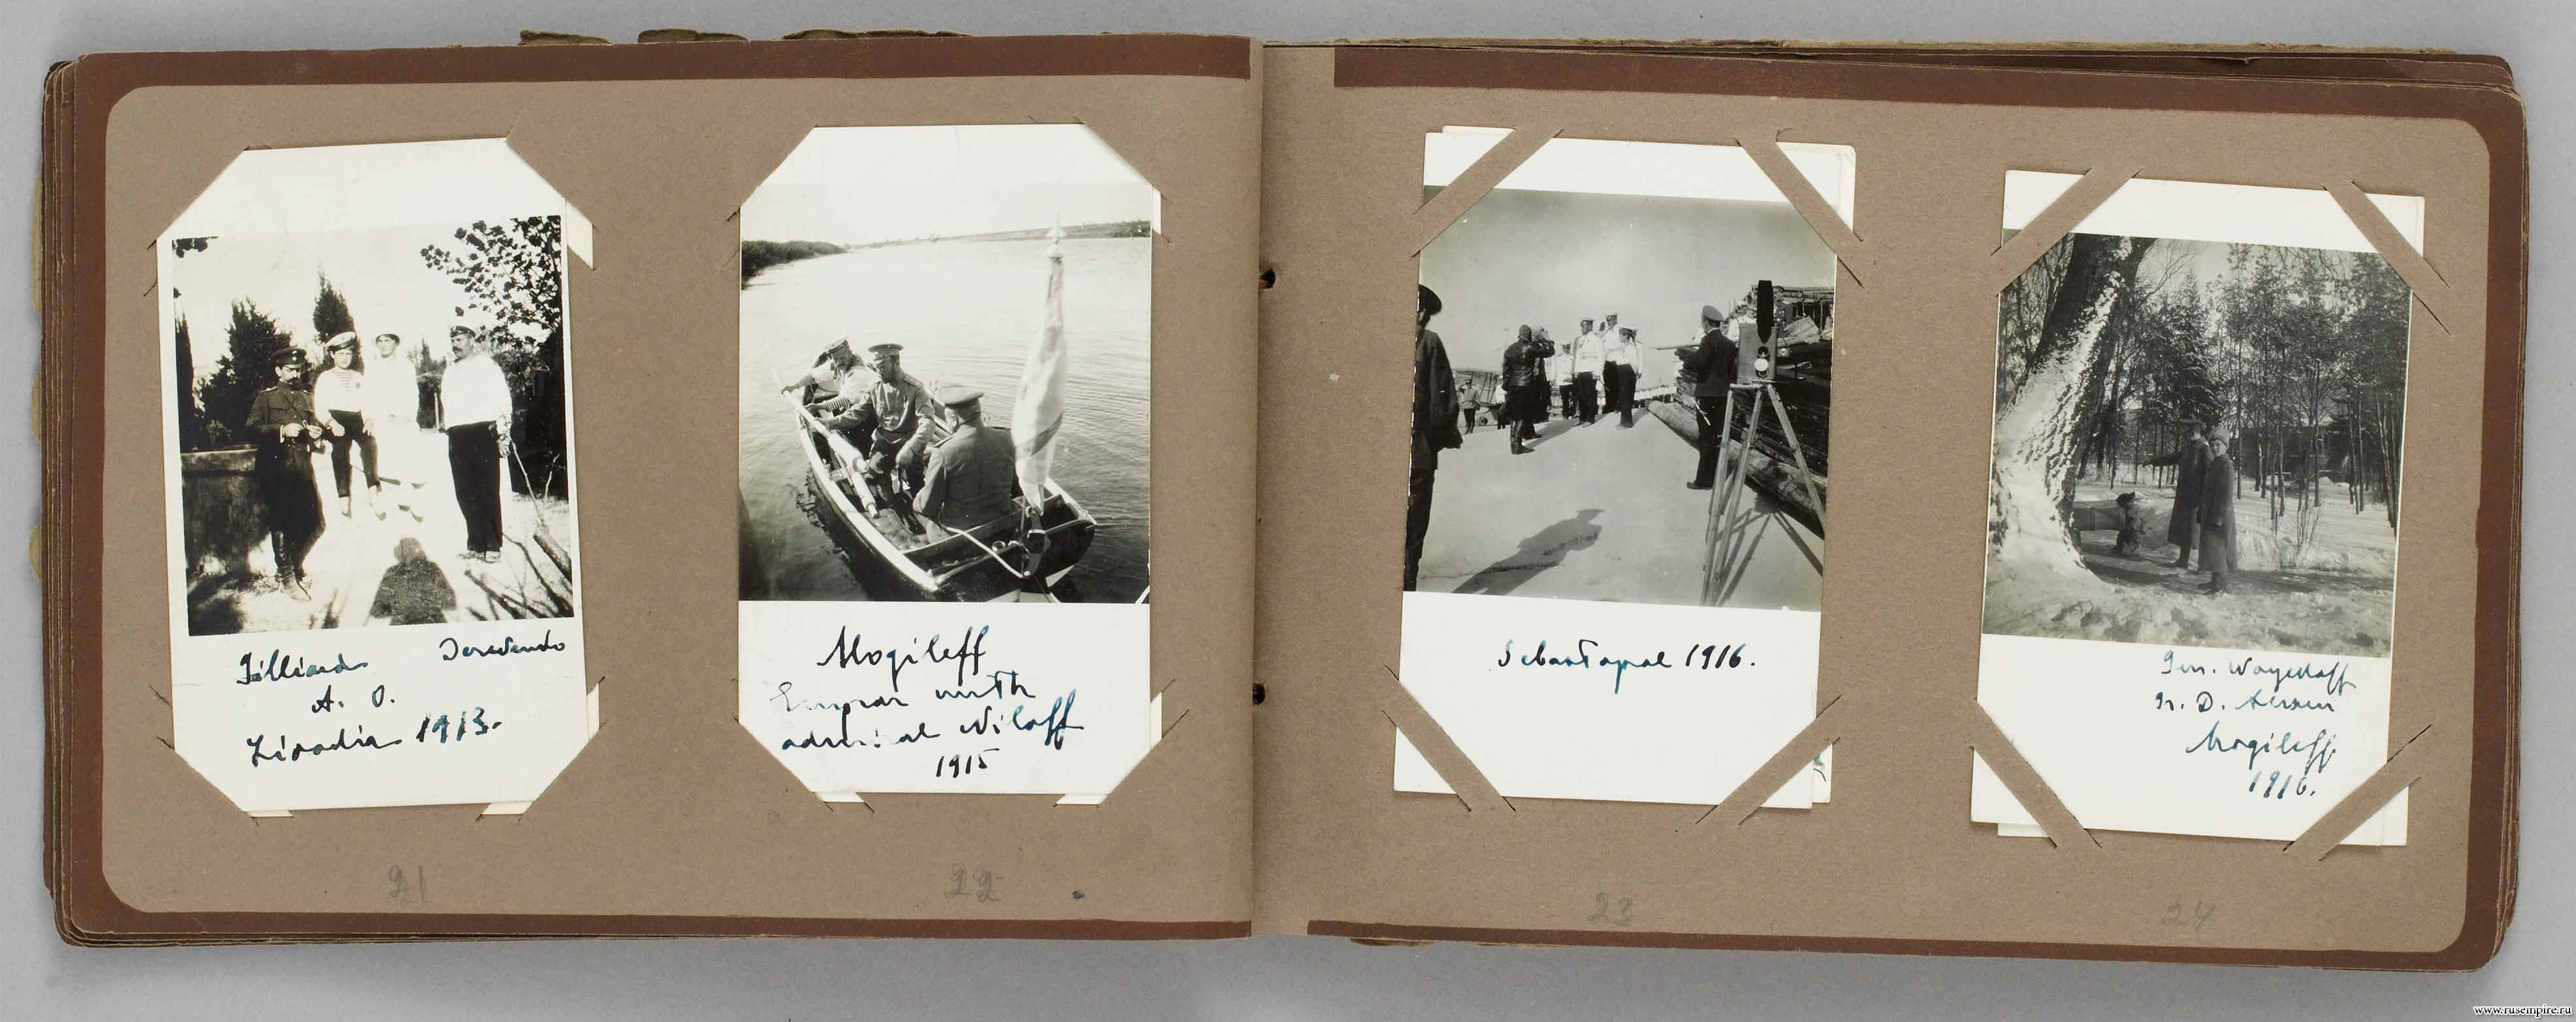 Gilliard Derevenko
A. O.
Livadia 1913.
21
Mogileff
Emperor with
admiral Niloff
1915
22
Sebastopol 1916.
23
Gen. Wayeikoff
Gr. D.
Mogileff
1916.
24
www.rusempire.ru